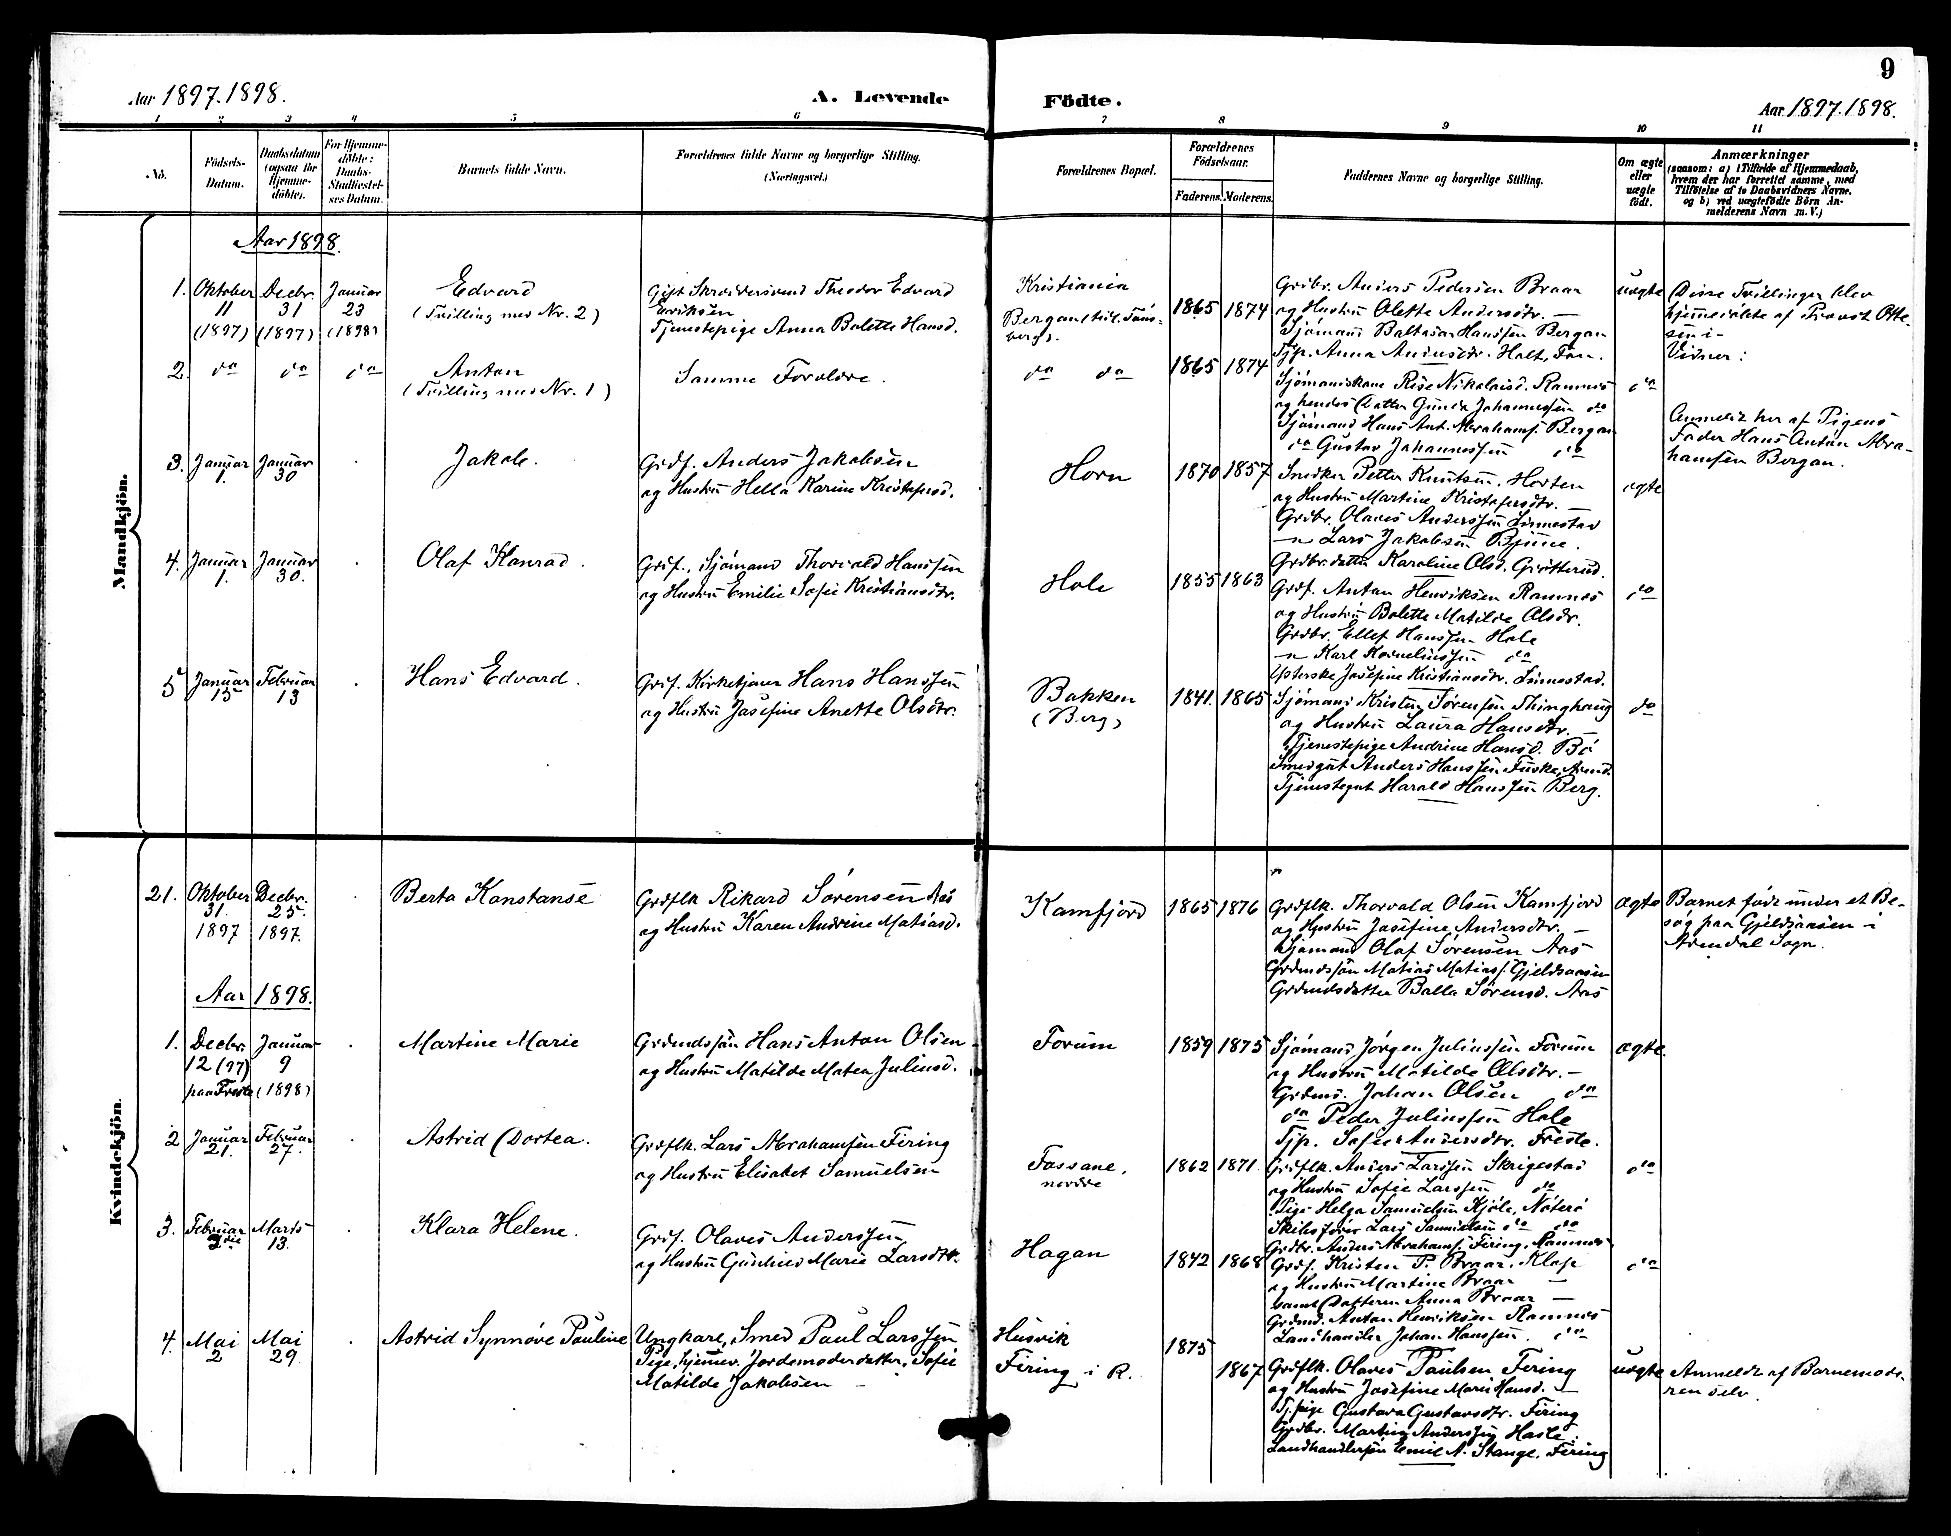 9
Aar 1897.1898.
A. Levende
Födte.
Aar 1897.1898.
1 2 3 4 5 6 7 8 9 10 11
No.
Födsels-
Datum.
Daabsdatum
(ogsaa for
Hjemme-
döbte).
For Hjemme-
döbte:
Daabs-
Stadfæstel-
ses Datum.
Barnets fulde Navn.
Forældrenes fulde Navne og borgerlige Stilling.
(Næringsvei.)
Forældrenes Bopæl.
Forældrenes
Födselsaar.
Faderens. Moderens.
Faddernes Navne og borgerlige Stilling.
Om ægte
eller
uægte
födt.
Anmærkninger
(saasom: a) i Tilfælde af Hjemmedaab,
hvem der har forrettet samme, med
Tilföielse af to Daabsvidners Navne.
og b) ved uægtefödte Börn An-
melderens Navn m. V.)
Mandkjön.
Aar 1898.
1. Oktober
11
(1897)
Decbr.
31
(1897)
Januar
23
(1898)
Edvard
(Tvilling med Nr. 2)
Gift Skræddersvend Theodor Edvard
Enriksen
Tjenestepige Anna Bolette Hansd.
Kristiania
Bergan (tidl. Töns-
berg).
1865 1874
Grdbr. Anders Pedersen Braar
og Hustru Olette Andersdtr. —
Sjömand Baltasar Hanssen Bergan
Tjp. Anna Andersdtr. Holt, Fon.
uægte
Disse Tvillinger blev
hjemmedöbte af Provst Otte-
sen i-
Vidner:
2. do do do
Anton
(Tvilling med Nr. 1)
Samme Forældre.
do do
1865 1874
Sjömandskone Rise Nikolaisd. Ramnes
og hendes Datter Gunda Johannessen do
Sjömand Hans Ant. Abrahams. Bergan
do Gustav Johannessen do
do
Anmeldt her af Pigens
Fader Hans Anton Abra-
hamsen Bergan.
3. Januar
1.
Januar
30
Jakob.
Grdf. Anders Jakobsen
og Hustru Hella Karine Kristofersd.
Horn
1870 1857
Snedker Petter Knutsen, Horten
og Hustru Martine Kristofersdtr. —
Grdbr. Olaves Anderssen Linnestad
—"— Lars Jakobsen Bjune.
Grdbr.datter Karoline Olsd. Grötterud.
ægte
4. Januar
1.
Januar
30.
Olaf Konrad.
Grdf., Sjömand Thorvald Hanssen
og Hustru Emilie Sofie Kristiansdtr.
Hole
1855 1863
Grdf. Anton Henriksen Ramnes
og Hustru Bolette Matilde Olsdr.
Grdbr. Ellef Hanssen Hole
—"— Karl Korneliussen do
Ipterske Josefine Kristiansdtr. Linnestad.
do
5 Januar
15
Februar
13
Hans Edvard.
Grdf. Kirketjener Hans Hanssen
og Hustru Josefine Anette Olsdtr.
Bakken
(Berg)
1841. 1865
Sjömand Kristen Sörensen Thinghaug
og Hustru Laura Hansdtr. —
Tjenestepige Andrine Hansd. Bö
Smedgut Anders Hanssen Fuske, Arend.
Tjenestegut Harald Hanssen Berg.
do
Kvindekjön.
21. Oktober
31.
1897
Decbr.
25.
1897.
Berta Konstanse
Grdflk. Rikard Sörensen Aas
og Hustru Karen Andrine Matiasd.
Kamfjord
1865 1876
Grdflk. Thorvald Olsen Kamfjord
og Hustru Josefine Andersdtr. —
Sjömand Olaf Sörensen Aas
Grdmdssön Matias Matiass. Gjeldsaasen
Grdmdsdatter Balla Sörensd. Aas
ægte
Barnet födt under et Be-
sög paa Gjeldsaasen i
Arendal Sogn.
Aar 1898.
1. Decbr.
12 (97)
paa Freste
Januar
9
(1898)
Martine Marie
Grdmdssön Hans Anton Olsen
og Hustru Matilde Matea Juliusd.
Forum
1859 1875
Sjömand Jörgen Juliussen Forum
og Hustru Matilde Olsdtr. —
Grdmd. Johan Olsen do
do Peder Juliussen Hole
Tjp. Sofie Andersdtr. Freste.
ægte.
2 Januar
21.
Februar
27.
Astrid Dortea.
Grdflk. Lars Abrahamsen Firing
og Hustru Elisabet Samuelsen
Fossane,
nordre
1862 1871.
Grdflk. Anders Larssen Skrigestad
og Hustru Sofie Larssen do
Pige Helga Samuelsen Kjöle, Nöterö
Skibsförer Lars Samuelsen do do
Grdbr. Anders Abrahams. Firing, Ramnes
do
3. Februar
2die
Marts
13.
Klara Helene.
Grdf. Olaves Anderssen
og Hustru Gunhild Marie Larsdtr.
Hagan
1842 1868
Grdf. Kristen P. Braar, Klop
og Hustru Martine Braar —
samt Datteren Anna Braar —
Grdmd. Anton Henriksen Ramnes
Landhandler Johan Hanssen. do
do
4. Mai
2
Mai
29.
Astrid Synnöve Pauline
Ungkarl, Smed Paul Larssen
Pige, hjemmev. Jordemoderdatter, Sofie
Matilde Jakobsen —
Husvik
Firing i R.
1875
1867
Grdflk. Olaves Paulsen Firing
og Hustru Josefine Marie Hansd. —
Tj.pige Gustava Gustavsdtr. Firing
Grdbr. Martin Anderssen Hasle.
Landhandlersön Emil A. Stange, Firing
uægte
Anmeldt af Barnemode-
ren selv.